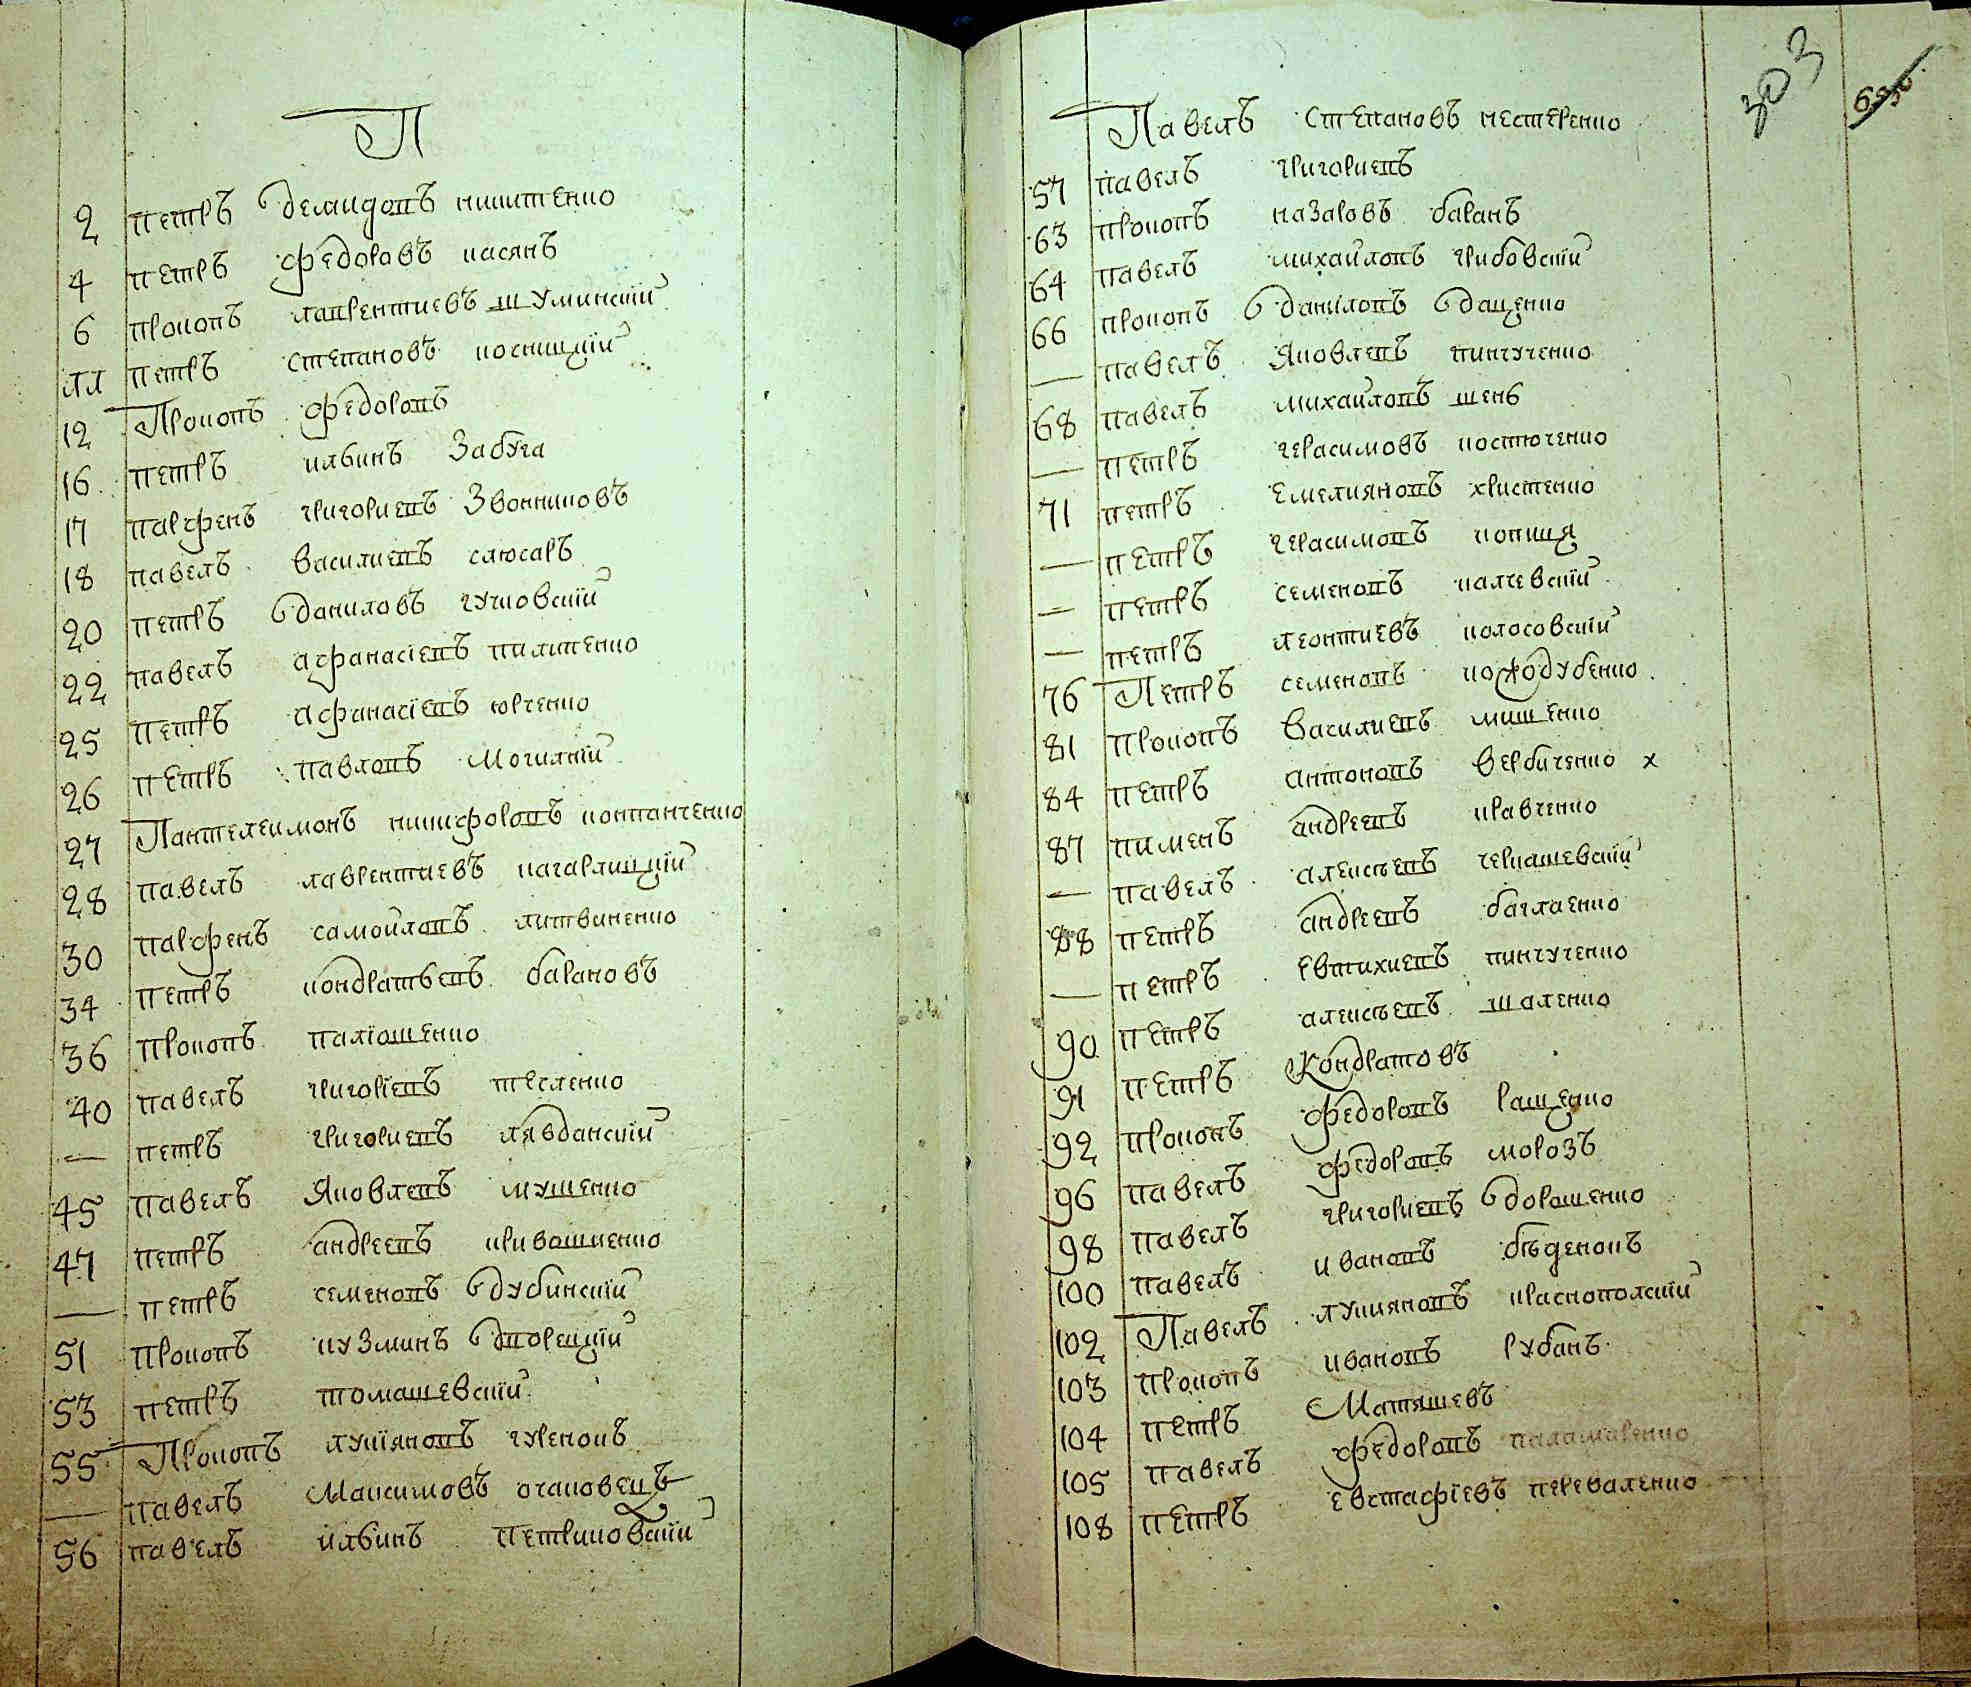 П
2 петръ демидовъ никитенко
4 петръ федоровъ касянъ
6 прокопъ лаврентиевъ шуминскій
11 петръ степановъ косницкій
12 Прокопъ федоровъ
16 петръ ильинъ Забуга
17 парфенъ григориевъ Звонниковъ
18 павелъ василиевъ слюсаръ
20 петръ даниловъ гуковскій
22 павелъ афанасіевъ пилипенко
25 петръ афанасіевъ юрченко
26 петръ павловъ Могилній
27 Пантелеимонъ никифоровъ контанченко
28 павелъ лаврентиевъ кагарлицкій
30 парфенъ самойловъ литвиненко
34 петръ кондратьевъ барановъ
36 прокопъ паліошенко
40 павелъ григоріевъ тесленко
— петръ григориевъ лявданскій
45 павелъ Яковлевъ мушенко
47 петръ андреевъ кривошиенко
— петръ семеновъ дубинскій
51 прокопъ кузминъ дворецкій
53 петръ томашевскій
55 Прокопъ лукіяновъ гуренокъ
— павелъ Максимовъ очаковецъ
56 павелъ ильинъ петриковскій
303
Павелъ степановъ нестеренко
57 павелъ григориевъ
63 прокопъ назаровъ баранъ
64 павелъ михайловъ грибовскій
66 прокопъ даніловъ даценко
— павелъ Яковлевъ пинчученко
68 павелъ михайловъ шень
— петръ герасимовъ костюченко
71 петръ Емелияновъ христенко
— петръ герасимовъ копиця
— петръ семеновъ калчевскій
— петръ леонтиевъ колосовскій
76 Петръ семеновъ кожодубенко
81 Прокопъ василиевъ мищенко
84 петръ антоновъ вербиченко х
87 пименъ андреевъ кравченко
— павелъ алексѣевъ чернашевскій
88 петръ андреевъ баглаенко
— петръ Евтихиевъ пинчученко
90 петръ алексѣевъ шаленко
91 петръ Кондратовъ
92 прокопъ федоровъ ращенко
96 павелъ федоровъ морозъ
98 павелъ григориевъ дорошенко
100 павелъ ивановъ бѣденокъ
102 Павелъ лукияновъ краснопольскій
103 прокопъ ивановъ рубанъ
104 петръ Матяшевъ
105 павелъ федоровъ паламаренко
108 петръ евстафіевъ переваленко